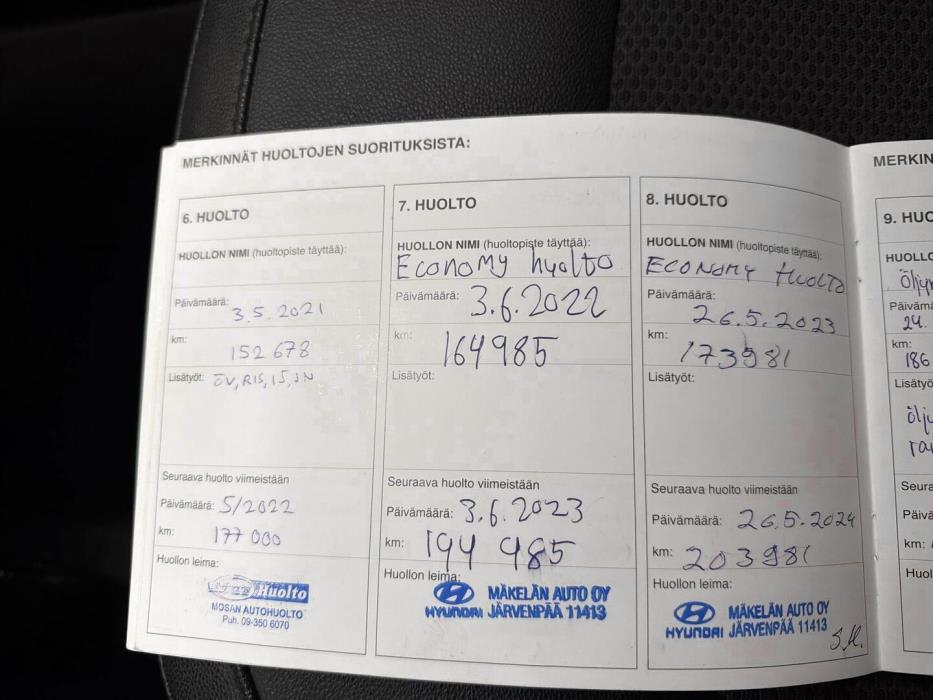 MERKINNÄT HUOLTOJEN SUORITUKSISTA:
6. HUOLTO
HUOLLON NIMI (huoltopiste täyttää):
Päivämäärä: 3.5.2021
km: 152 678
Lisätyöt: ÖV, RIS, IS, JN
Seuraava huolto viimeistään
Päivämäärä: 5/2022
km: 177 000
Huollon leima:
Huolto
MOSAN AUTOHUOLTO
Puh. 09-350 6070
7. HUOLTO
HUOLLON NIMI (huoltopiste täyttää):
Economy huolto
Päivämäärä: 3.6.2022
km: 164985
Lisätyöt:
Seuraava huolto viimeistään
Päivämäärä: 3.6.2023
km: 194 985
Huollon leima:
MÄKELÄN AUTO OY
HYUNDAI JÄRVENPÄÄ 11413
8. HUOLTO
HUOLLON NIMI (huoltopiste täyttää):
ECONOMY HUOLTO
Päivämäärä:
26.5.2023
km:
173981
Lisätyöt:
Seuraava huolto viimeistään
Päivämäärä: 26.5.2024
km: 203981
Huollon leima:
MÄKELÄN AUTO OY
HYUNDAI JÄRVENPÄÄ 11413
S.H.
MERKIN
9. HUO
HUOLLO
Öljy
Päivämä
24.
km:
186
Lisätyö
Öljy
Seura
Päivä
km:
Huol